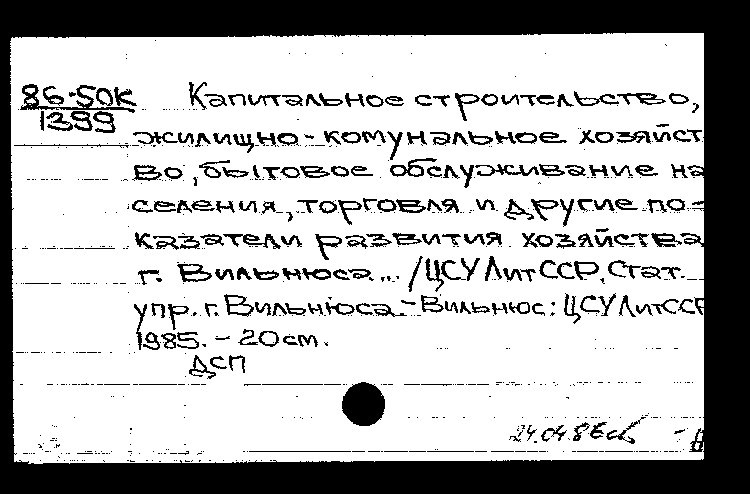 86-50К
1399
Капитальное строительство,
жилищно-комунальное хозяйст
во, бытовое обслуживание на
селения, торговля и другие по-
казатели развития хозяйства
г. Вильнюса... /ЦСУ ЛитССР, Стат.
упр. г. Вильнюса.-Вильнюс: ЦСУ ЛитССР
1985. - 20 см.
ДСП
24.04.86